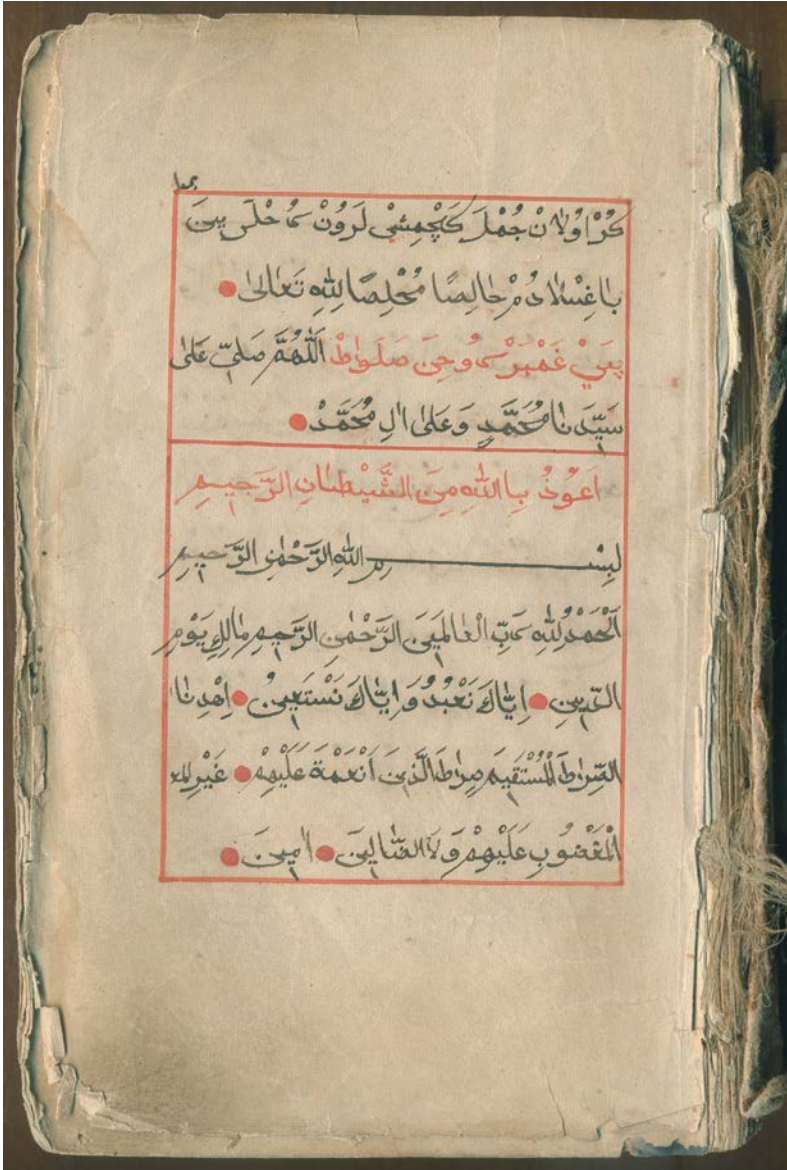 كُزْاوُلَانْ جُمْلَ كَچْمِشْ لَرُونْ
بَاغِشْلَادُمْ خَالِصًا مُخْلِصًا لِلّٰهِ تَعَالٰى
صَلَوٰاطْ اَللّٰهُمَّ صَلِّي عَلٰى
سَيِّدَنَا مُحَمَّدٍ وَعَلٰى اٰلِ مُحَمَّدْ
اَعُوْذُ بِااللّٰهِ مِنَ الشَّيْطٰانِ الرَّجِيمِ
بِسْــــــمِ اللّٰهِ الرَّحْمٰنِ الرَّحِيمِ
اَلْحَمْدُ لِلّٰهِ رَبِّ الْعٰالَمِيَن الرَّحْمٰنِ الرَّحِيمِ مٰالِكِ يَوْمِ
الدِّينِ اِيّٰاكَ نَعْبُدُ وَاِيّٰاكَ نَسْتَعِينُ اِهْدِنَا
الصِّرٰاطَ الْمُسْتَقِيَم صِرٰاطَ الَّذِينَ اَنْعَمْةَ عَلَيْهِمْ غَيْرِ المغ
الْمَغْضُوبِ عَلَيْهِمْ وَلَا الضّٰالِّينَ اٰمِينَ